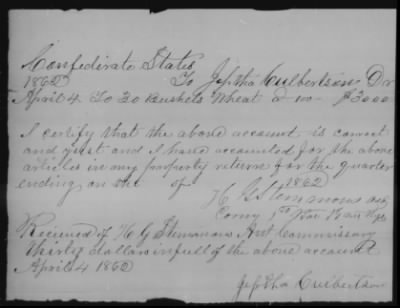 Confederate States
1862 To Jeptha Culbertson Dr
April 4 To 30 Bushels Wheat @ 100 $30 00
I certify that the above account is correct
and just and I have accounted for the above
articles in my property return for the quarter
ending on the of 1862
H G Slemmons Act
Comy 1st
Received of H G Slemmons Act Commissary
thirty dollars in full of the above account
April 4 1862
Jeptha Culbertson